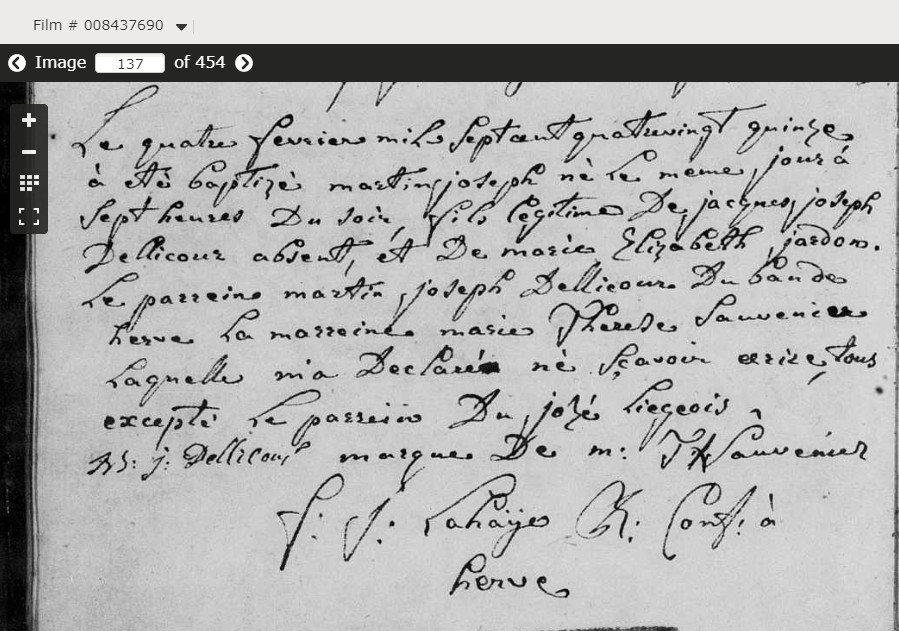 Film # 008437690
Image 137 of 454
Le quatre fevrier mil Septcent quatrevingt quinze
à eté baptizé martin joseph né Le meme jour á
Sept heures Du soir, fils legitime De jacques joseph
Dellicour absent, et De marie Elizabeth jardon.
Le parrein martin joseph Dellicour Du ban de
herve La marreine marie Therese Sauvenier
Laquelle m'a Declaré né Sçavoir ecrire, tous
excepté Le parrein Du Liegeois
M: j: Dellicour marque De m: TH Sauvenier
f. f. Lahaÿe R. Conf: à
herve